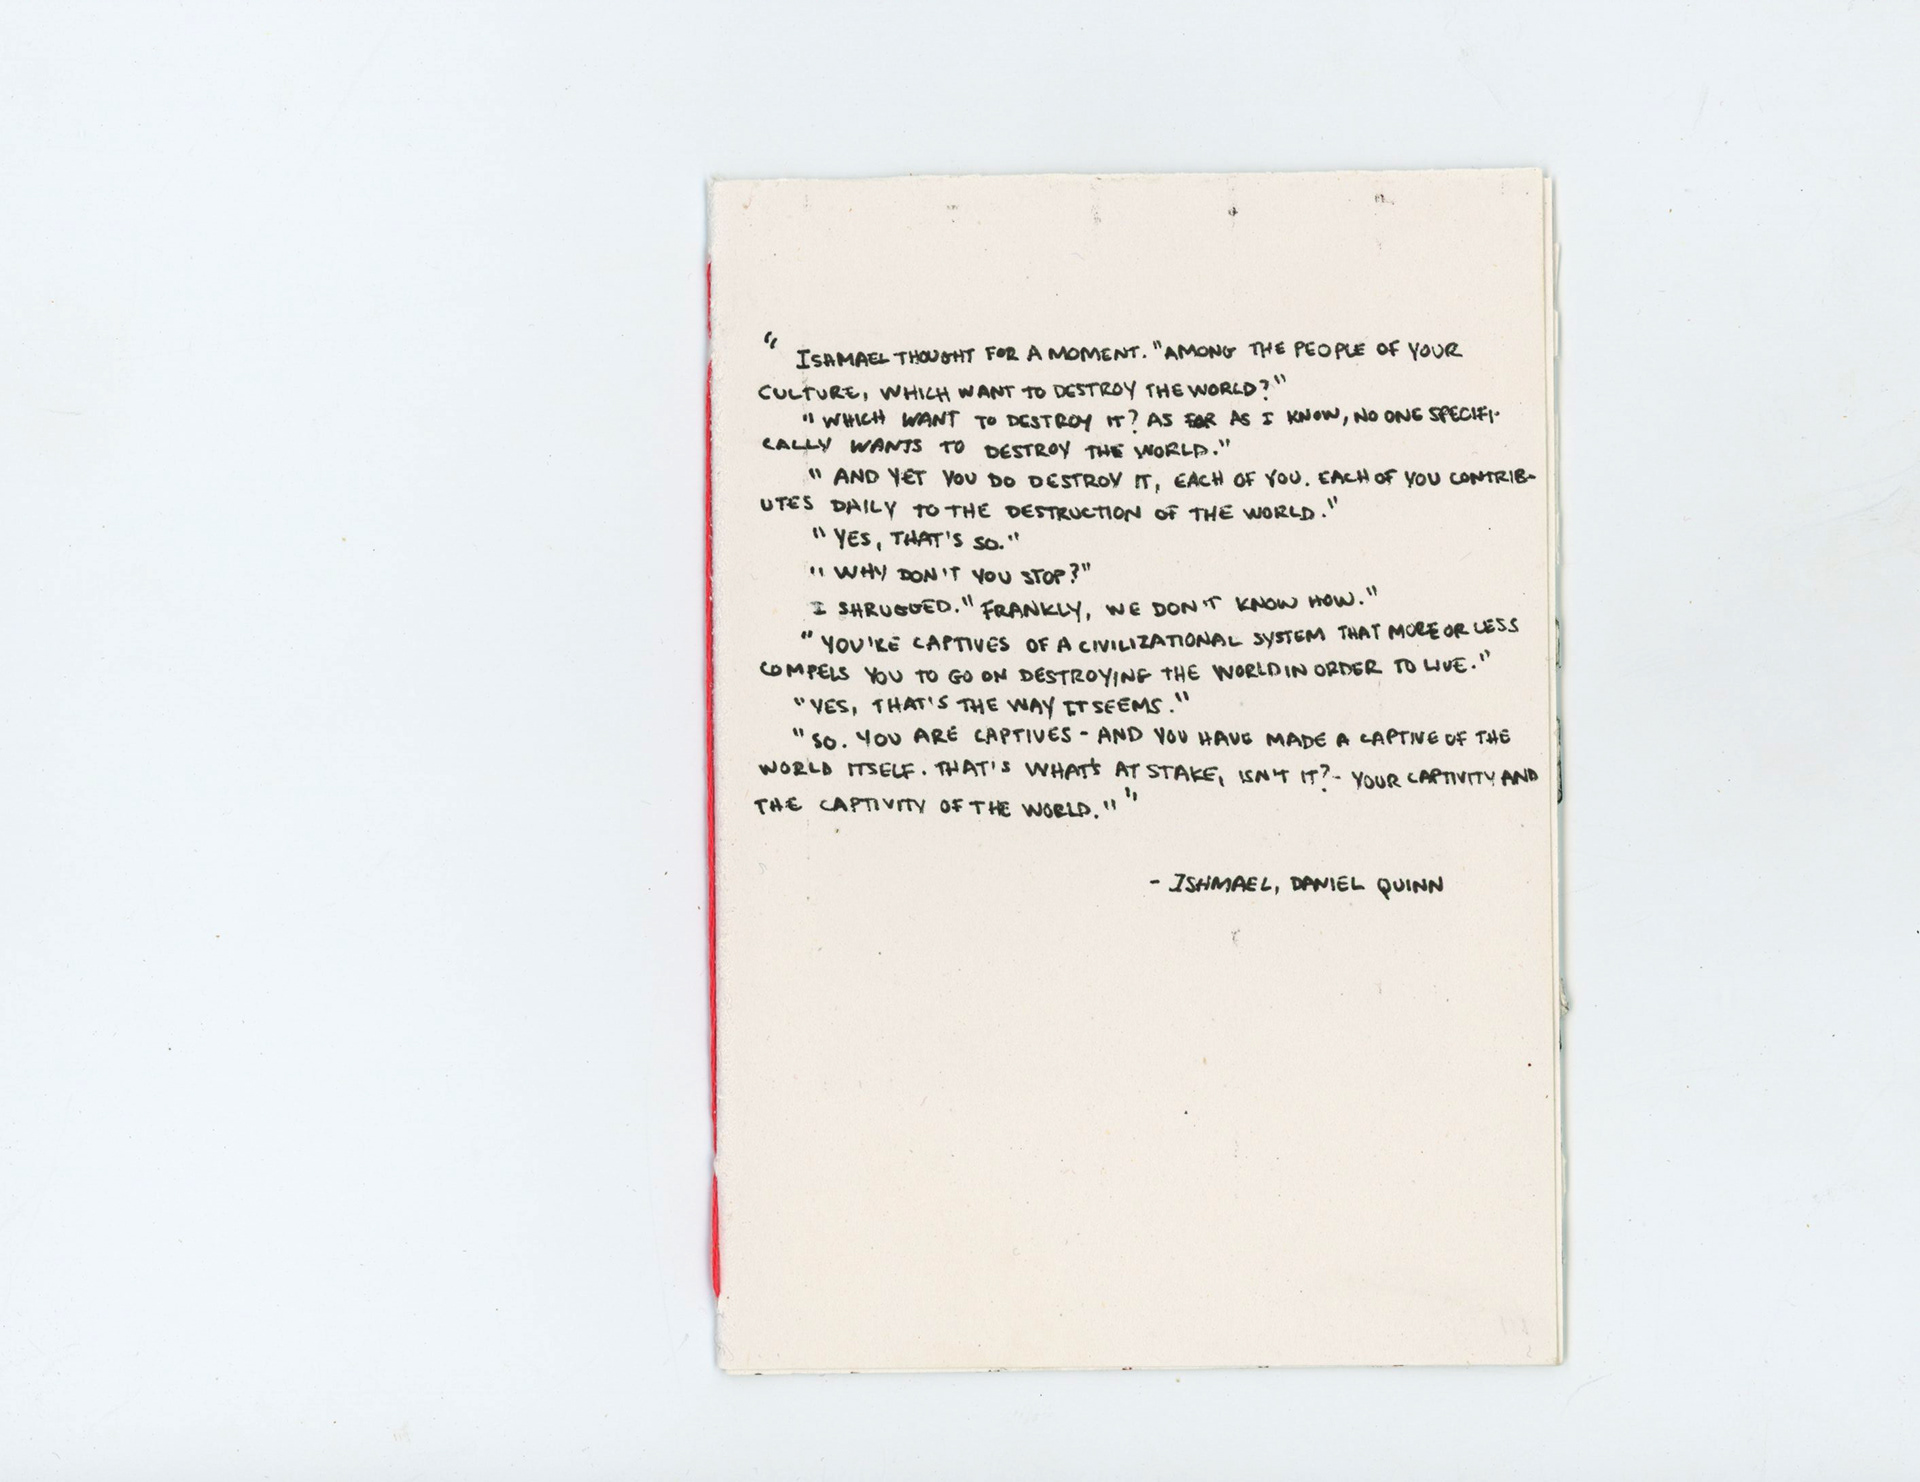 " ISHMAEL THOUGHT FOR A MOMENT. "AMONG THE PEOPLE OF YOUR
CULTURE, WHICH WANT TO DESTROY THE WORLD?"
"WHICH WANT TO DESTROY IT? AS FAR AS I KNOW, NO ONE SPECIFI-
CALLY WANTS TO DESTROY THE WORLD."
"AND YET YOU DO DESTROY IT, EACH OF YOU. EACH OF YOU CONTRIB-
UTES DAILY TO THE DESTRUCTION OF THE WORLD."
"YES, THAT'S SO."
"WHY DON'T YOU STOP?"
I SHRUGGED. "FRANKLY, WE DON'T KNOW HOW."
"YOU'RE CAPTIVES OF A CIVILIZATIONAL SYSTEM THAT MORE OR LESS
COMPELS YOU TO GO ON DESTROYING THE WORLD IN ORDER TO LIVE."
"YES, THAT'S THE WAY IT SEEMS."
"SO. YOU ARE CAPTIVES - AND YOU HAVE MADE A CAPTIVE OF THE
WORLD ITSELF. THAT'S WHAT'S AT STAKE, ISN'T IT? - YOUR CAPTIVITY AND
THE CAPTIVITY OF THE WORLD." "
- ISHMAEL, DANIEL QUINN